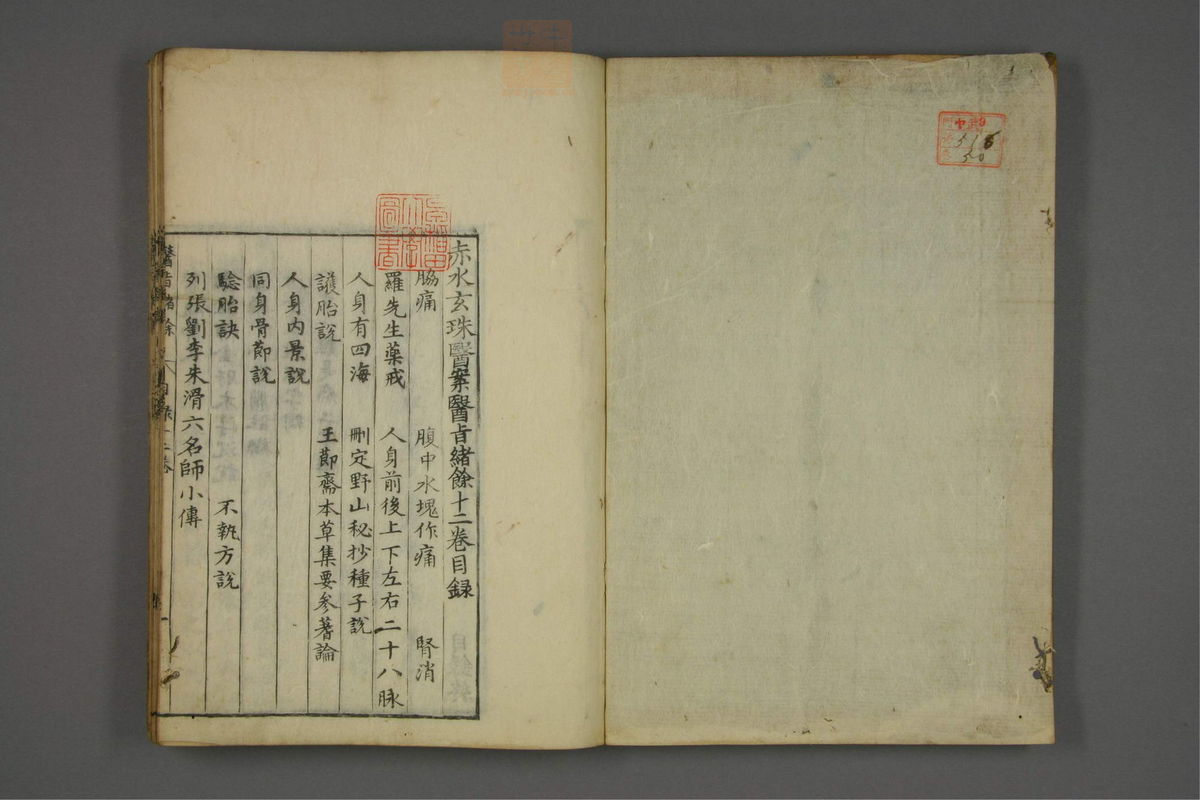 赤水玄珠醫案醫旨緒餘十二卷目録
脇痛　腹中水塊作痛　腎消
羅先生藥戒　人身前後上下左右二十八脉
人身有四海　刪定野山秘抄種子說
護胎說　王節齋本草集要参蓍論
人身内景說
同身骨節說
驗胎訣　不執方說
列張劉李朱滑六名師小傳
醫旨緒餘